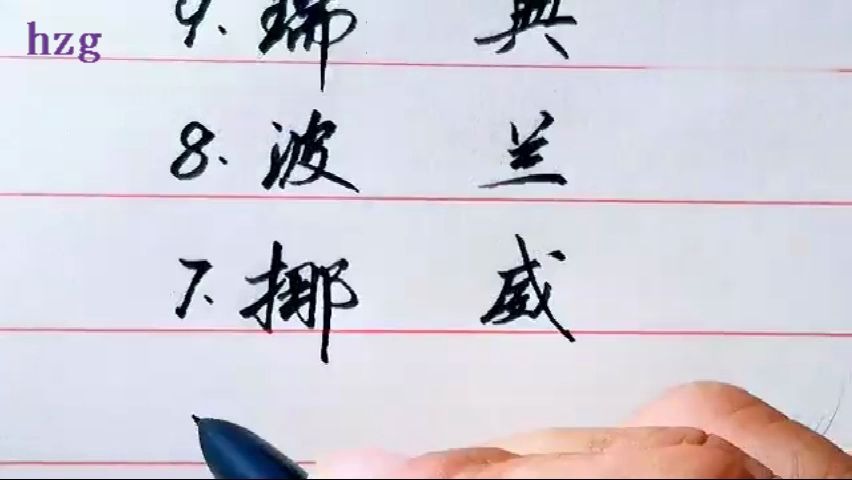 hzg
9. 瑞 典
8. 波 兰
7. 挪 威